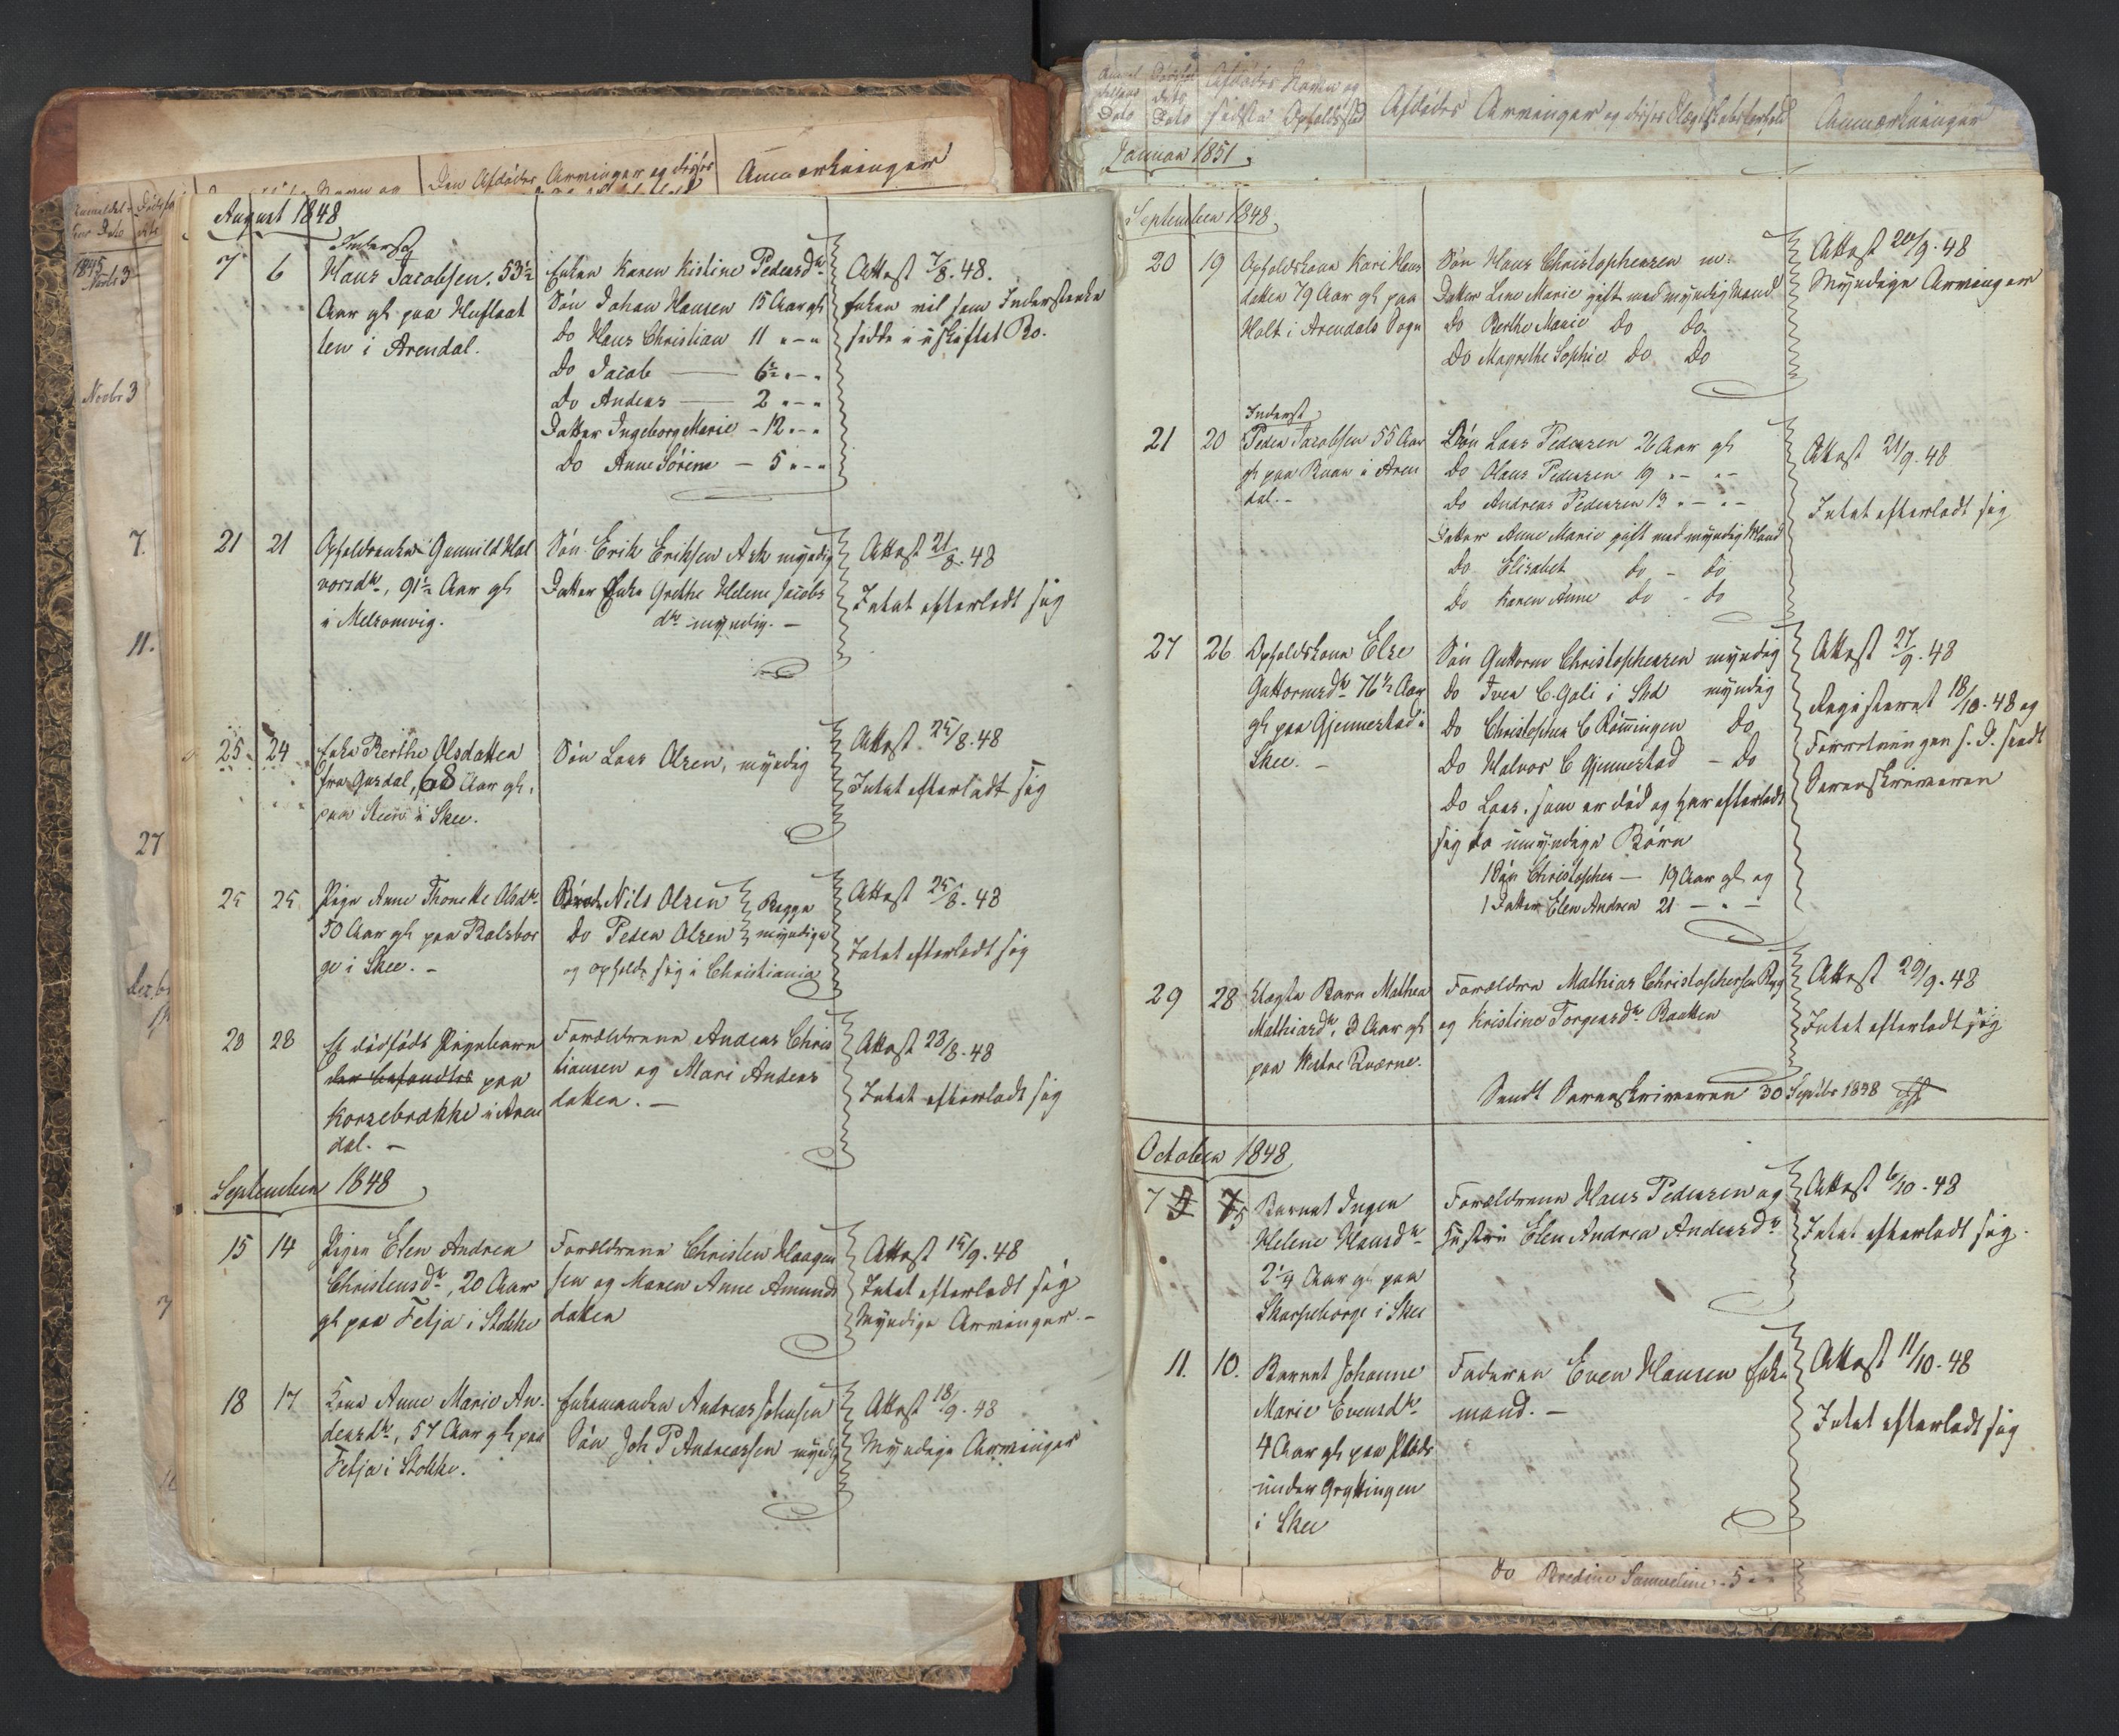 Den Afdødes Arvinger og disses
Anmærkninger
1845
Novbr 3
Novbr 3
7.
11.
27
August 1848
7 6
Inderst
Hans Jacobsen, 53½
Aar gl paa Huflaat
ten i Arendal.
Enken Karen Kistine Pedersdtr
Søn Johan Hansen 15 Aar gl
Do Hans Christian 11 " – "
Do Jacob — 6½ " – "
Do Anders — 2 " – "
Datter Ingeborg Marie – 12 " – "
Do Anne Sørine — 5 " – "
Attest 7/8. 48.
Enken vil som Inderstenke
sidde i uskiftet Bo.
21 21
Opholdsenke Gunnild Hal
vorsdtr, 91½ Aar gl
i Melsomvig.
Søn Erik Eriksen Ask myndig
Datter Enke Grethe Helene Jacobs
dtr myndig. –
Attest 21/8. 48
Intet efterladt sig
25 24
Enke Berthe Olsdatter
fra Gusdal, 68 Aar gl,
paa Steen i Skee.
Søn Lars Olsen, myndig
Attest 25/8. 48
Intet efterladt sig
25 25
Pige Anne Thonette Olsdtr
50 Aar gl paa Balsbor
ge i Skee. –
Brod. Nils Olsen
Do Peder Olsen
Begge
myndige
og opholde sig i Christiania
Attest 25/8. 48
Intet efterladt sig
28 28
Et dødfødt Pigebarn
paa
Korsebrække i Aren
dal. –
Forældrene Anders Chris
tiansen og Mari Anders
datter. –
Attest 28/8. 48
Intet efterladt sig
September 1848
15 14
Pigen Elen Andrea
Christensdtr, 20 Aar
gl paa Fetja i Stokke
Forældrene Christen Haagen
sen og Maren Anne Amunds
datter
Attest 15/9. 48
Intet efterladt sig
Myndige Arvinger. –
18 17
Kone Anne Marie An-
dersdtr, 57 Aar gl paa
Fetja i Stokke.
Enkemanden Andreas Johnsen
Søn Joh P Andreassen myndig
Attest 18/9. 48
Myndige Arvinger
Anmel
delsens
Dato
Dødsfal
dets
Dato
Afdødes Navn og
sidste Opholdssted
Afdødes Arvinger og disses Slægtskabsforhold
Anmærkninger
Januar 1851
September 1848
20 19
Opholdskone Kari Hans
datter 79 Aar gl paa
Holt i Arendals Sogn
Søn Hans Christophersen m:
Datter Lene Marie gift med myndig Mand
Do Berthe Marie Do Do
Do Magrethe Sophie Do Do
Attest 20/9. 48
Myndige Arvinger
21 20
Inderst
Peder Jacobsen 55 Aar
gl paa Ruan i Aren
dal. –
Søn Lars Pedersen 26 Aar gl
Do Olaus Pedersen 19 " – " –
Do Andreas Pedersen 13 " – " –
Datter Anne Marie gift med myndig Mand
Do Elisabet Do – Do
Do Karen Anne Do – Do
Attest 21/9. 48
Intet efterladt sig
27 26
Opholdskone Else
Guttormsdtr 76½ Aar
gl paa Gjennestad i
Skee. –
Søn Guttorm Christophersen myndig
Do Iver C. Gali i Skd myndig
Do Christopher C Rømmingen Do
Do Halvor C Gjennestad – Do
Do Lars, som er død og har efterladt
sig to umyndige Børn
1 Søn Christopher — 19 Aar gl og
1 Datter Elen Andrea 21 — " —
Attest 27/9. 48
Registeret 18/10. 48 og
Forretningen s. D. sendt
Sorenskriveren
29 28
Uægte Barn Mathea
Mathiasdtr, 3 Aar gl
paa Vestre Qværne.
Forældre Mathias Christophersen Ryg
og Kristine Torgersdtr Bratten
Attest 29/9. 48
Intet efterladt sig
Sendt Sorenskriveren 30 Septbr 1848
October 1848
7 5
Barnet Inger
Helene Hansdtr
2¼ Aar gl paa
Skarsholt i Skee
Forældrene Hans Pedersen og
Hustru Elen Andrea Andersdtr
Attest 6/10. 48
Intet efterladt sig.
11. 10.
Barnet Johanne
Marie Evensdtr
4 Aar gl paa Plads
under Gryttingen
i Skee
Faderen Even Hansen Enke
mand. –
Attest 11/10. 48
Intet efterladt sig
Do Bredine Samueline 5 " –